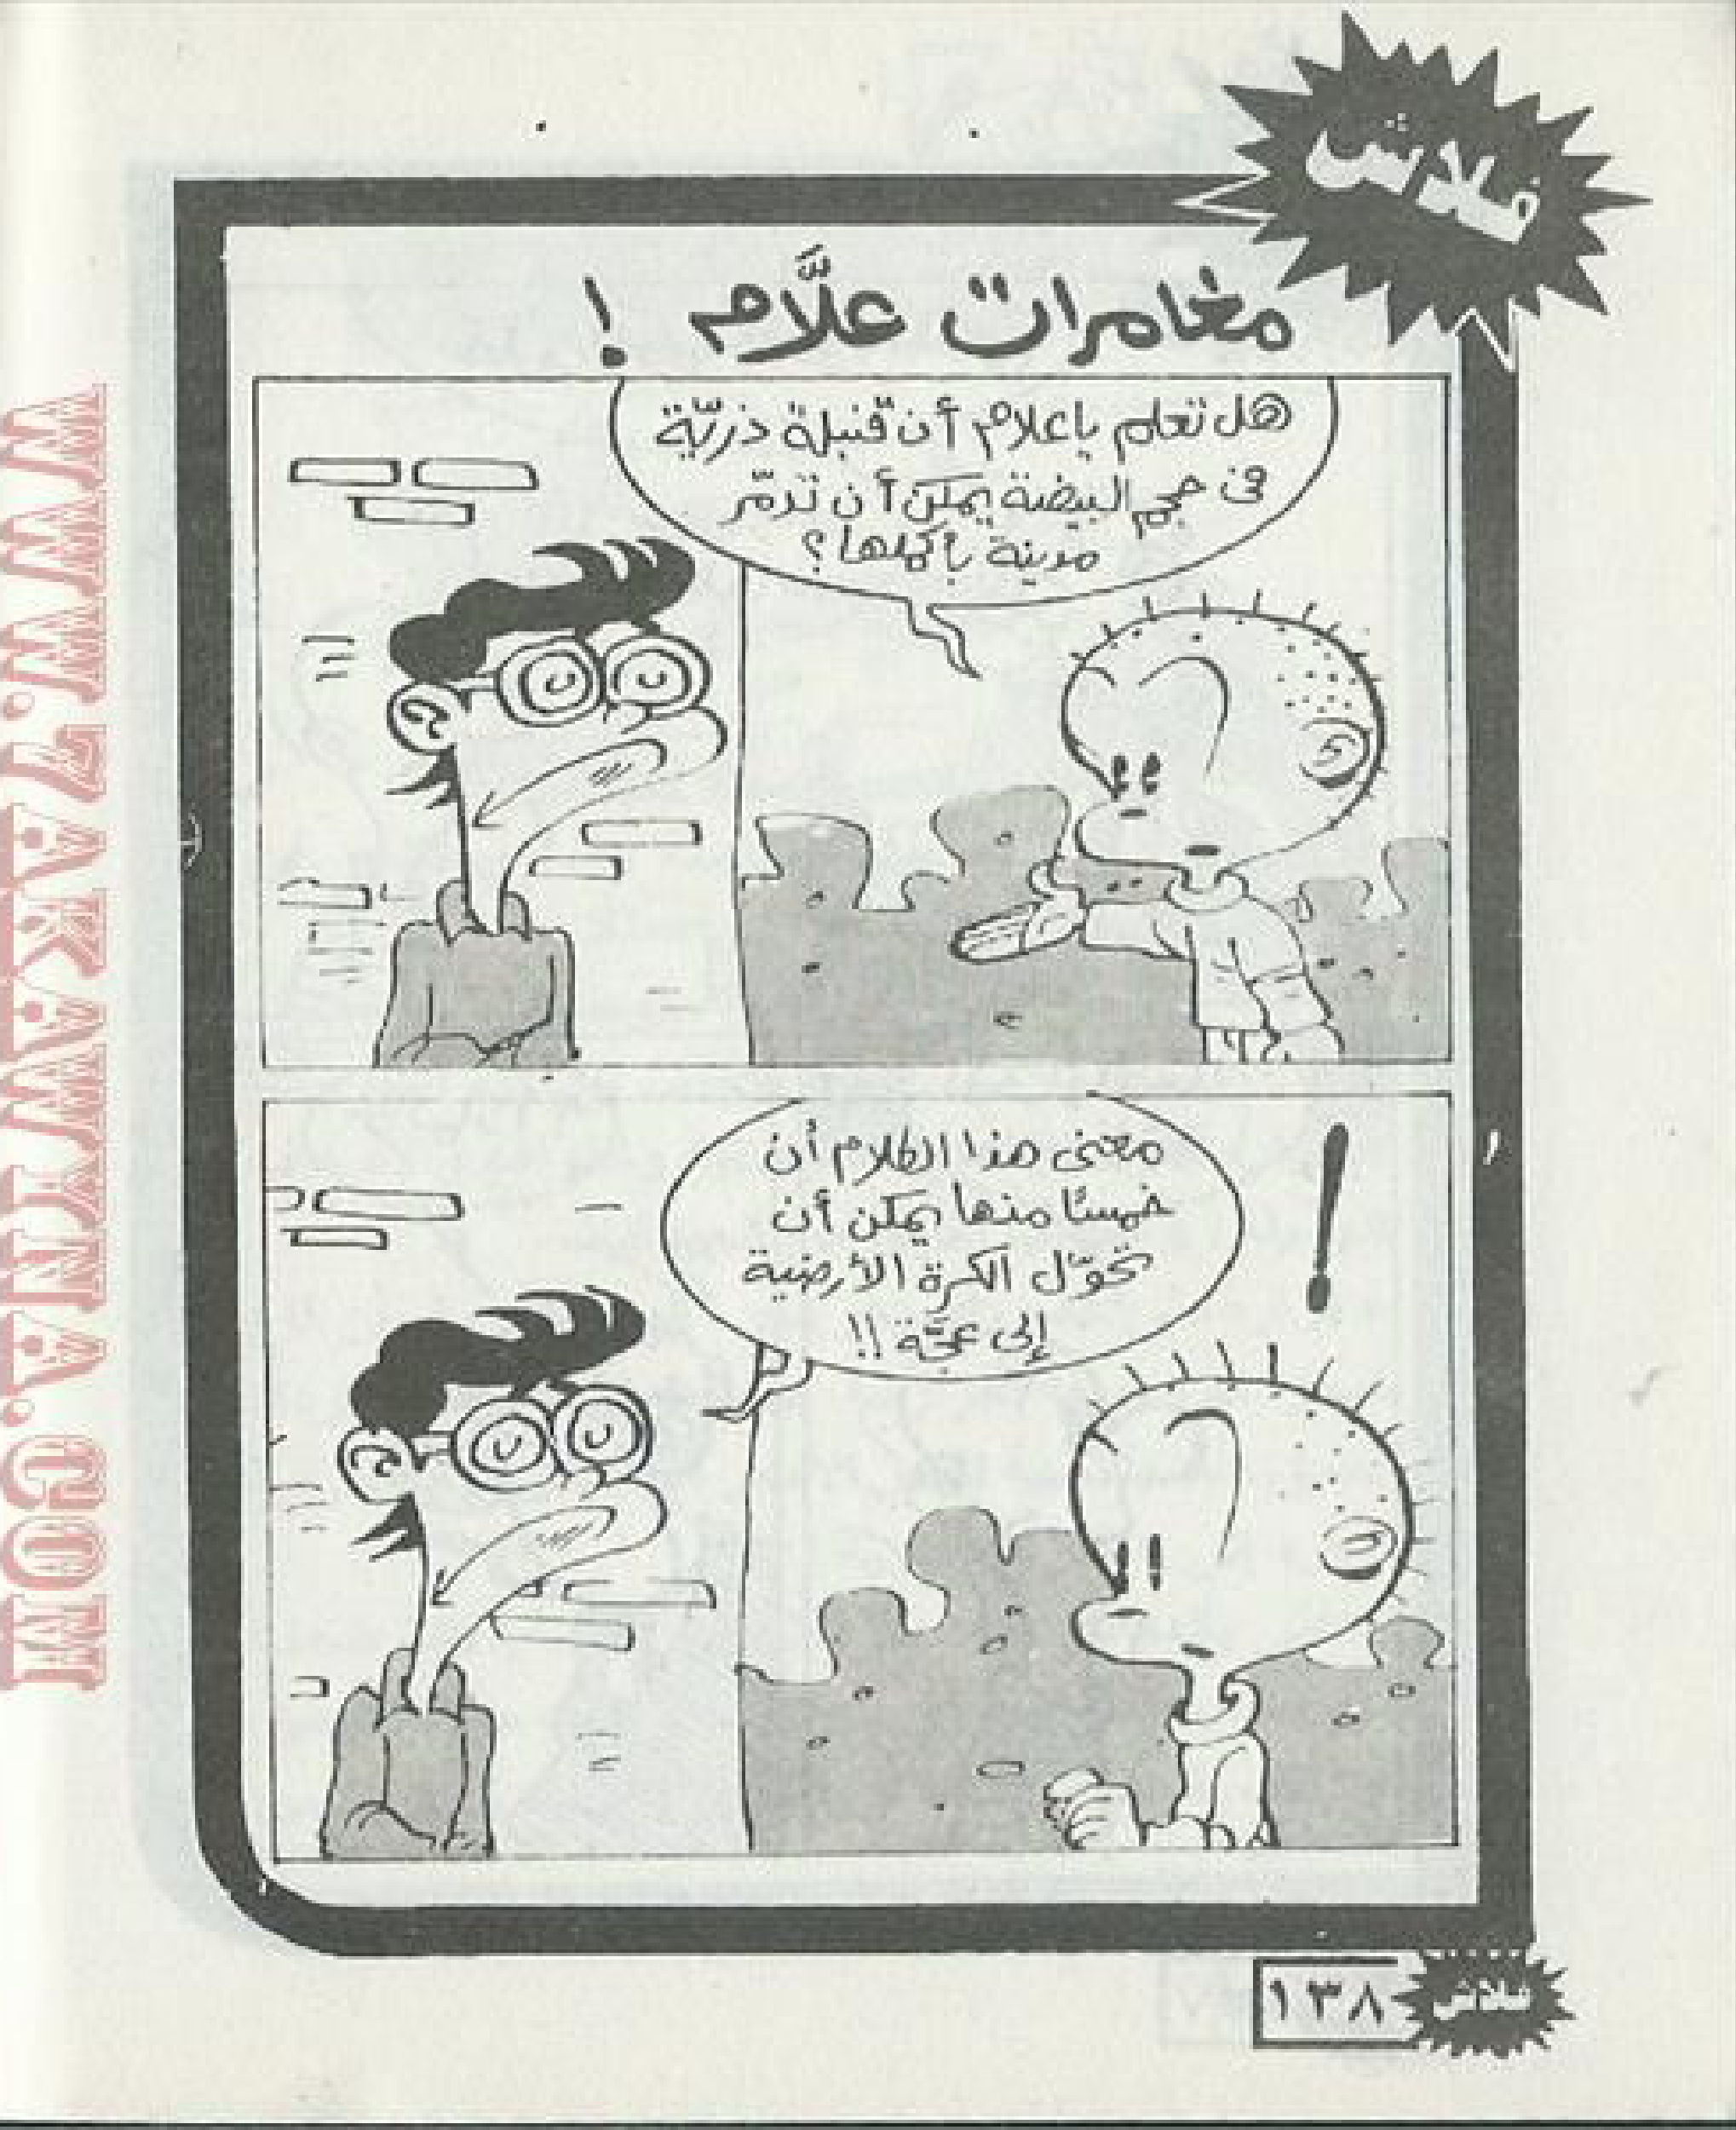 فلاش
مغامرات علَّام !
هل تعلم ياعلام أن قنبلة ذرّيّة
فى حجم البيضة يمكن أن تدمّر
مدينة بأكملها ؟
معنى هذا الكلام أن
خمسًا منها يمكن أن
تحوّل الكرة الأرضية
إلى عجَّة !!
١٣٨
فلاش
WWW.7AKAWTNA.COM